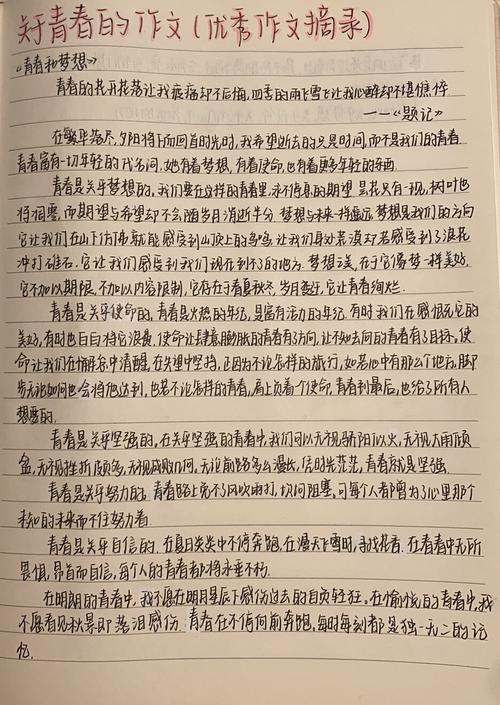 关于青春的作文(优秀作文摘录)
《青春和梦想》
青春的花开花落让我疲痛却不后悔,四季的雨飞雪飞让我心醉却不堪憔悴
——《题记》
在繁华落尽,夕阳将下而回首的光时,我希望逝去的只是时间,而不是我们的青春
青春富有一切年轻的代名词,她有着梦想,有着使命,也有着更多年轻的东西.
青春是关乎梦想的,我们要在这样的青春里,永不停息的期望.昙花只有一现,树叶也
将凋零,而期望与希望却不会随岁月消逝半分.梦想与未来一样遥远,梦想是我们的方向
它让我们在山下仿佛就能感受到山顶上的鸟鸣,让我们身处荒漠却若感受到了浪花
冲打礁石.它让我们感受到我们现在到不了的地方.梦想之美,在于它像梦一样美好,
它不加以期限,不加以内容限制,它存在于春夏秋冬,岁月蹉跎,它让青春绚烂.
青春是关乎使命的,青春是火热的年纪,是富有活力的年纪.有时我们在感恨它的
美好,有时也白白将它浪费,使命让肆意膨胀的青春有了方向,让不知去向的青春有了目标.使
命让我们在懈怠中清醒,在失望中坚持,正因为不论怎样的旅行,如若心中有那么个地方,脚
步无论如何也会将他达到,也若不论怎样的青春,肩上负着个使命,青春到最后,也给了所有人
想要的.
青春是关乎坚强的,在关乎坚强的青春中,我们可以无视骄阳似火,无视大雨倾
盆,无视挫折颇多,无视成败几何,无论前路多么漫长,信时光茫茫,青春就是坚强.
青春是关乎努力的,青春路上免不了风吹雨打,坎坷阻塞,可每个人都曾为了心里那个
未知的未来而不住努力着.
青春是关乎自信的,在夏日炎炎中不停奔跑,在漫天飞雪时,寻找花香.在青春中无所
畏惧,昂首而自信,每个人的青春都将永垂不朽.
在明朗的青春中,我不愿在明月星辰下感伤过去的自负轻狂.在愉悦的青春中,我
不愿看见秋景即落泪感伤.青春在不停向前奔跑,每时每刻都是独一无二的记
忆.